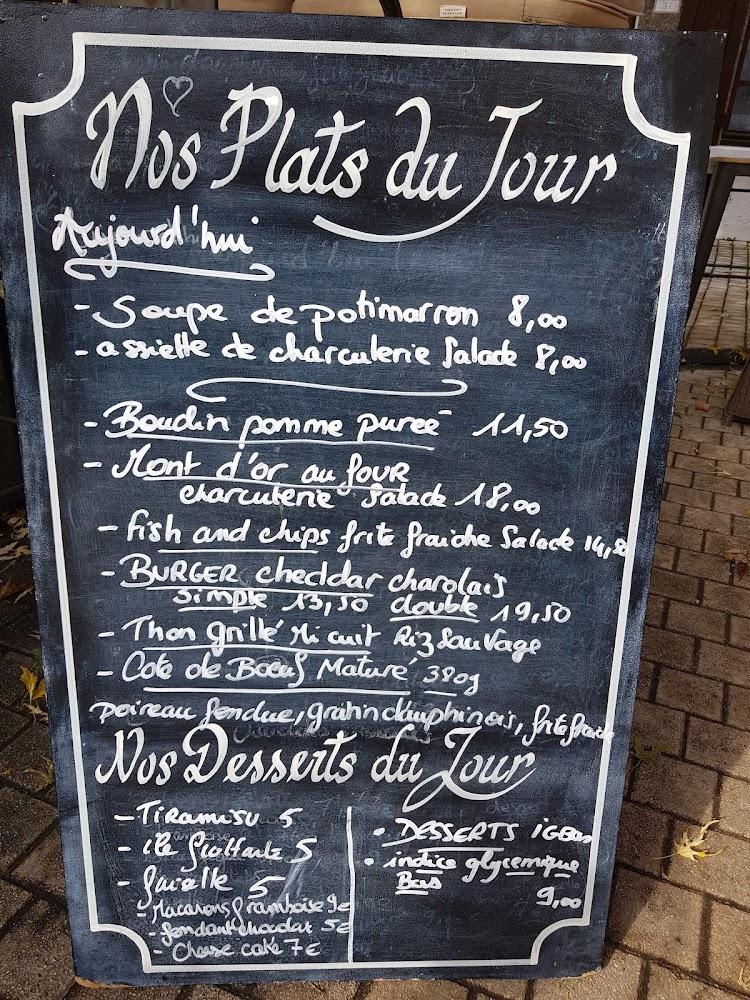 Nos Plats du Jour
Aujourd'hui
- Soupe de potimarron 8,00
- assiette de charcuterie Salade 8,00
- Boudin pomme pureé 11,50
- Mont d'or au four
charcuterie salade 18,00
- fish and chips frite fraiche Salade 14,50
- BURGER cheddar charolais
simple 13,50 double 19,50
- Thon grillé Mi cuit Riz Sauvage
- Cote de Bœuf Maturé 380g
poireau fondue, gratin dauphinois, frite fraiche
Nos Desserts du Jour
- TiRamisu 5
- ile flottante 5
- faisselle 5
- Macarons framboise 9€
- fondant chocolat 5€
- Cheese cake 7€
- DESSERTS iGBas
• indice glycemique
Bas
9,00
37